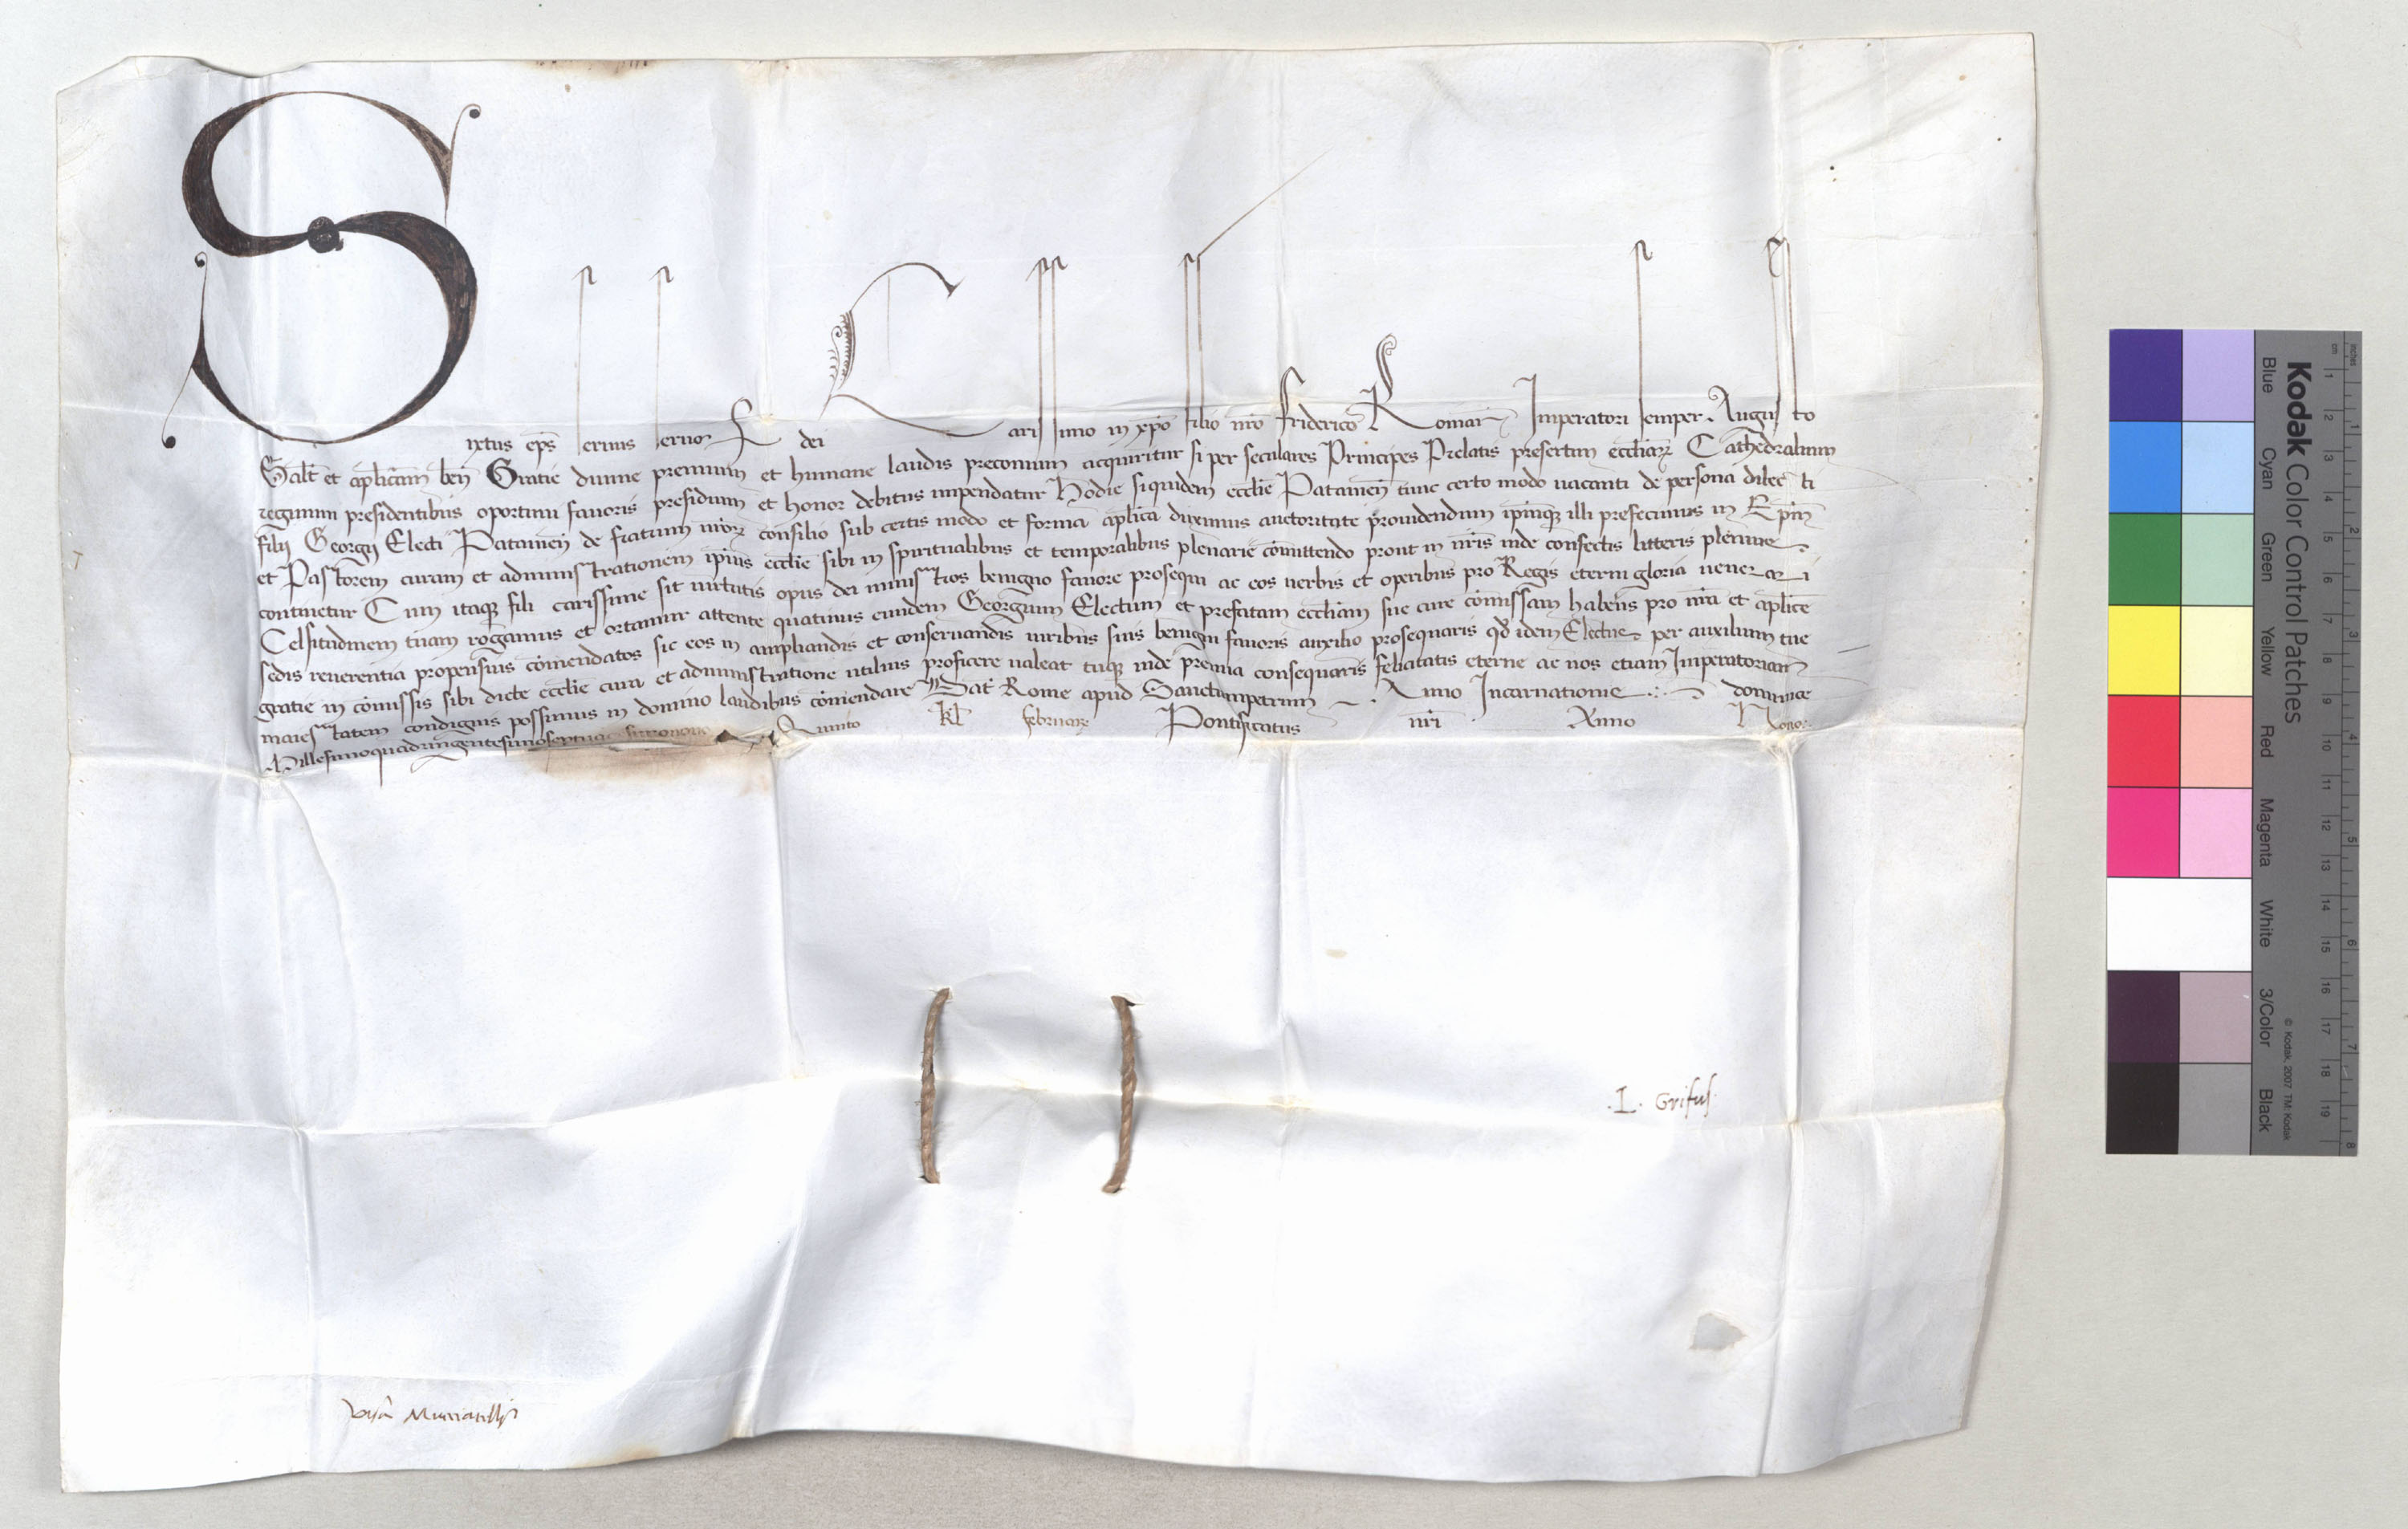 Sixtus eps seruus seruoꝝ dei Carissimo in xpo filio nro Friderico Romanoꝝ Imperatori semper Augusto
Salt et aplicam ben Gratie diuine premium et humane laudis preconium acquiritur si per seculares Principes Prelatis presertim eccliaꝝ Cathedralium
regimini presidentibus oportuni fauoris presidium et honor debitus impendatur Hodie siquidem ecclie Patauien tunc certo modo uacanti de persona dilecti
filij Georgij Electi Patauien de fratrum nroꝝ consilio sub certis modo et forma aplica duximus auctoritate prouidendum ipmqꝫ illi prefecimus in Epm
et Pastorem curam et administrationem ipius ecclie sibi in spiritualibus et temporalibus plenarie comittendo prout in nris inde confectis litteris plenius
continetur Cum itaqꝫ fili carissime sit uirtutis opus dei ministros benigno fauore prosequi ac eos uerbis et operibus pro Regis eterni gloria uenerari
Celsitudinem tuam rogamus et ortamur attente quatinus eundem Georgium Electum et prefatam eccliam sue cure comissam habens pro nra et aplice
sedis reuerentia propensius comendatos sic eos in ampliandis et conseruandis iuribus suis benigni fauoris auxilio prosequaris qd idem Electus per auxilium tue
gratie in comissis sibi dicte ecclie cura et administratione utilius proficere ualeat tuqꝫ inde premia consequaris felicitatis eterne ac nos etiam Imperatoriam
maiestatem condignis possimus in domino laudibus comendare Dat Rome apud Sanctumpetrum Anno Incarnationis dominice
Millesimoquadringentesimoseptuagesimonono Quinto kl februarꝝ Pontificatus nri Anno Nono
.L. Grifus
Muniatellis
Kodak Color Control Patches
Blue Cyan Green Yellow Red Magenta White 3/Color Black
© Kodak, 2007 TM: Kodak
cm 1 2 3 4 5 6 7 8 9 10 11 12 13 14 15 16 17 18 19
inches 1 2 3 4 5 6 7 8